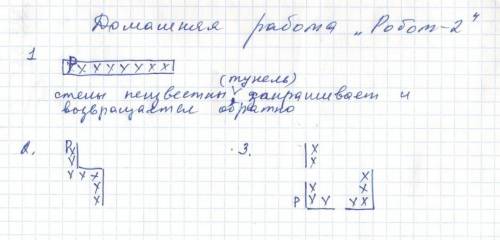 Домашняя работа „Робот-2"
1
Р X X X X X X X
(тунель)
стены неизвестны, закрашивает и
возвращается обратно
2. 3.
Р
Р